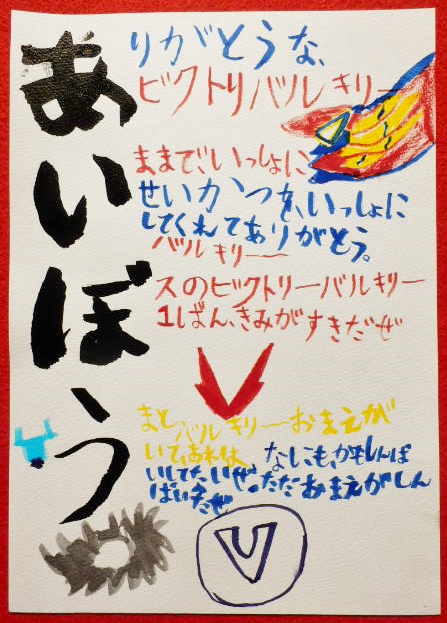 あいぼう
りがとうな、
ビクトリバルキリー
ままで、いっしょに
せいかつを、いっしょに
してくれてありがとう。
バルキリー
スのビクトリーバルキリー
1ばん、きみがすきだぜ
まと バルキリーおまえが
いて、
なにも、かもしんぱ
ただおまえがしん
V